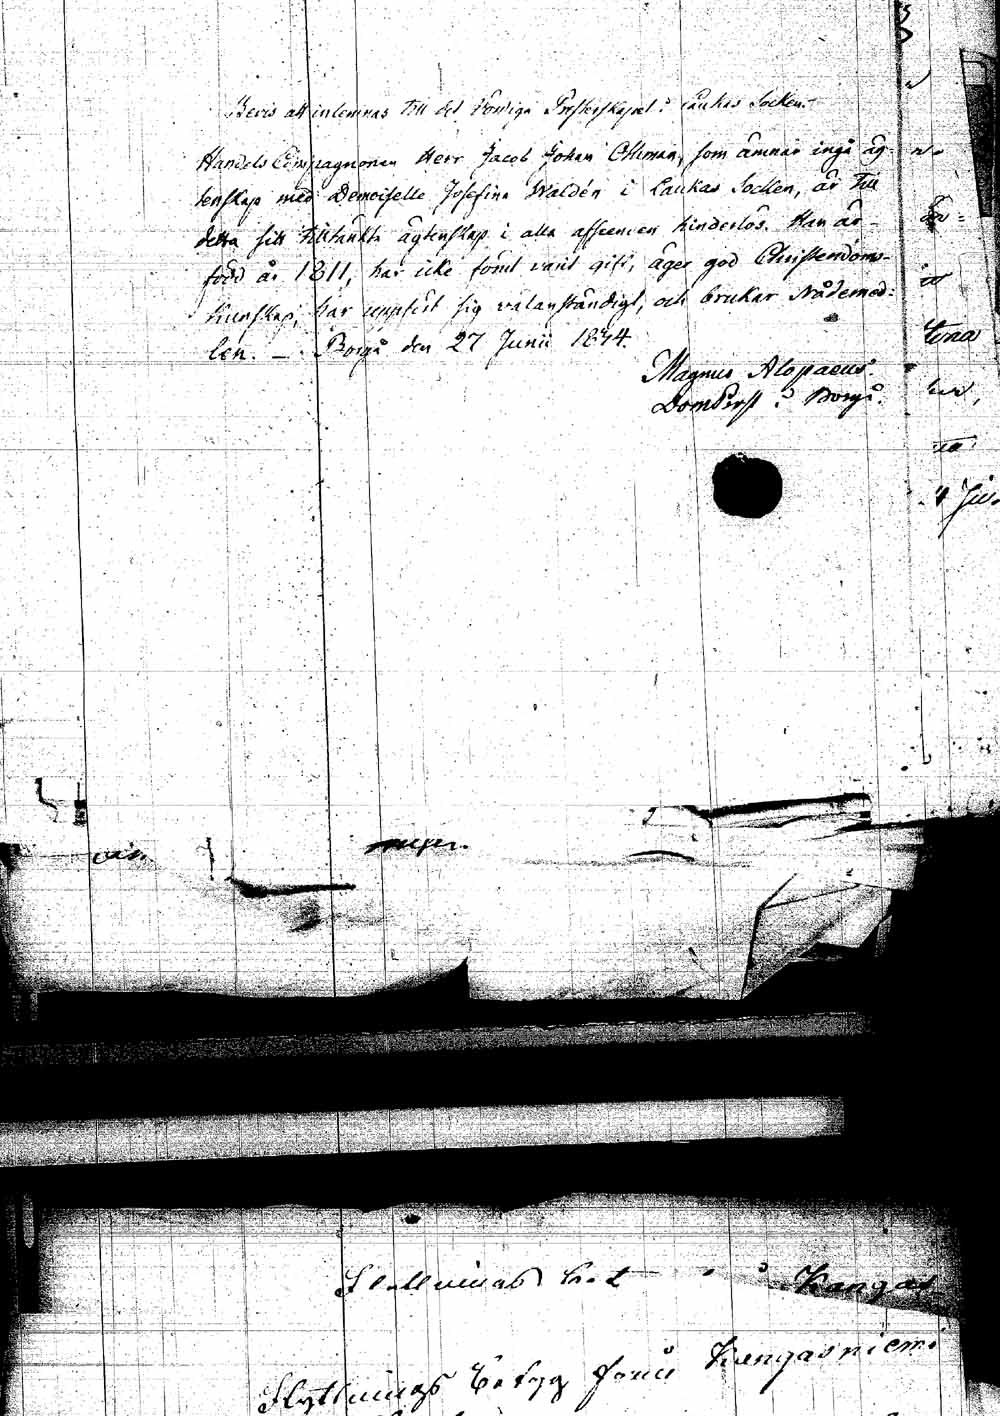 Bevis att inlemnas till det Vördiga Presterskapet i Laukas Socken.
Handels Compagnonen Herr Jacob Johan Öhman, som ämnar ingå äg-
tenskap med Demoiselle Josefina Waldén i Laukas Socken, är till
detta sitt tilltänkta ägtenskap i alla afseenden hinderlös. Han är
född år 1811, har icke förut varit gift, äger god Christendoms-
kunskap, har uppfört sig välanständigt, och brukar Nådemed-
len. — Borgå den 27 Junii 1844.
Magnus Alopaeus.
DomProst i Borgå.
Flyttnings
Kangas
Flyttnings Betyg från Kangasniemi